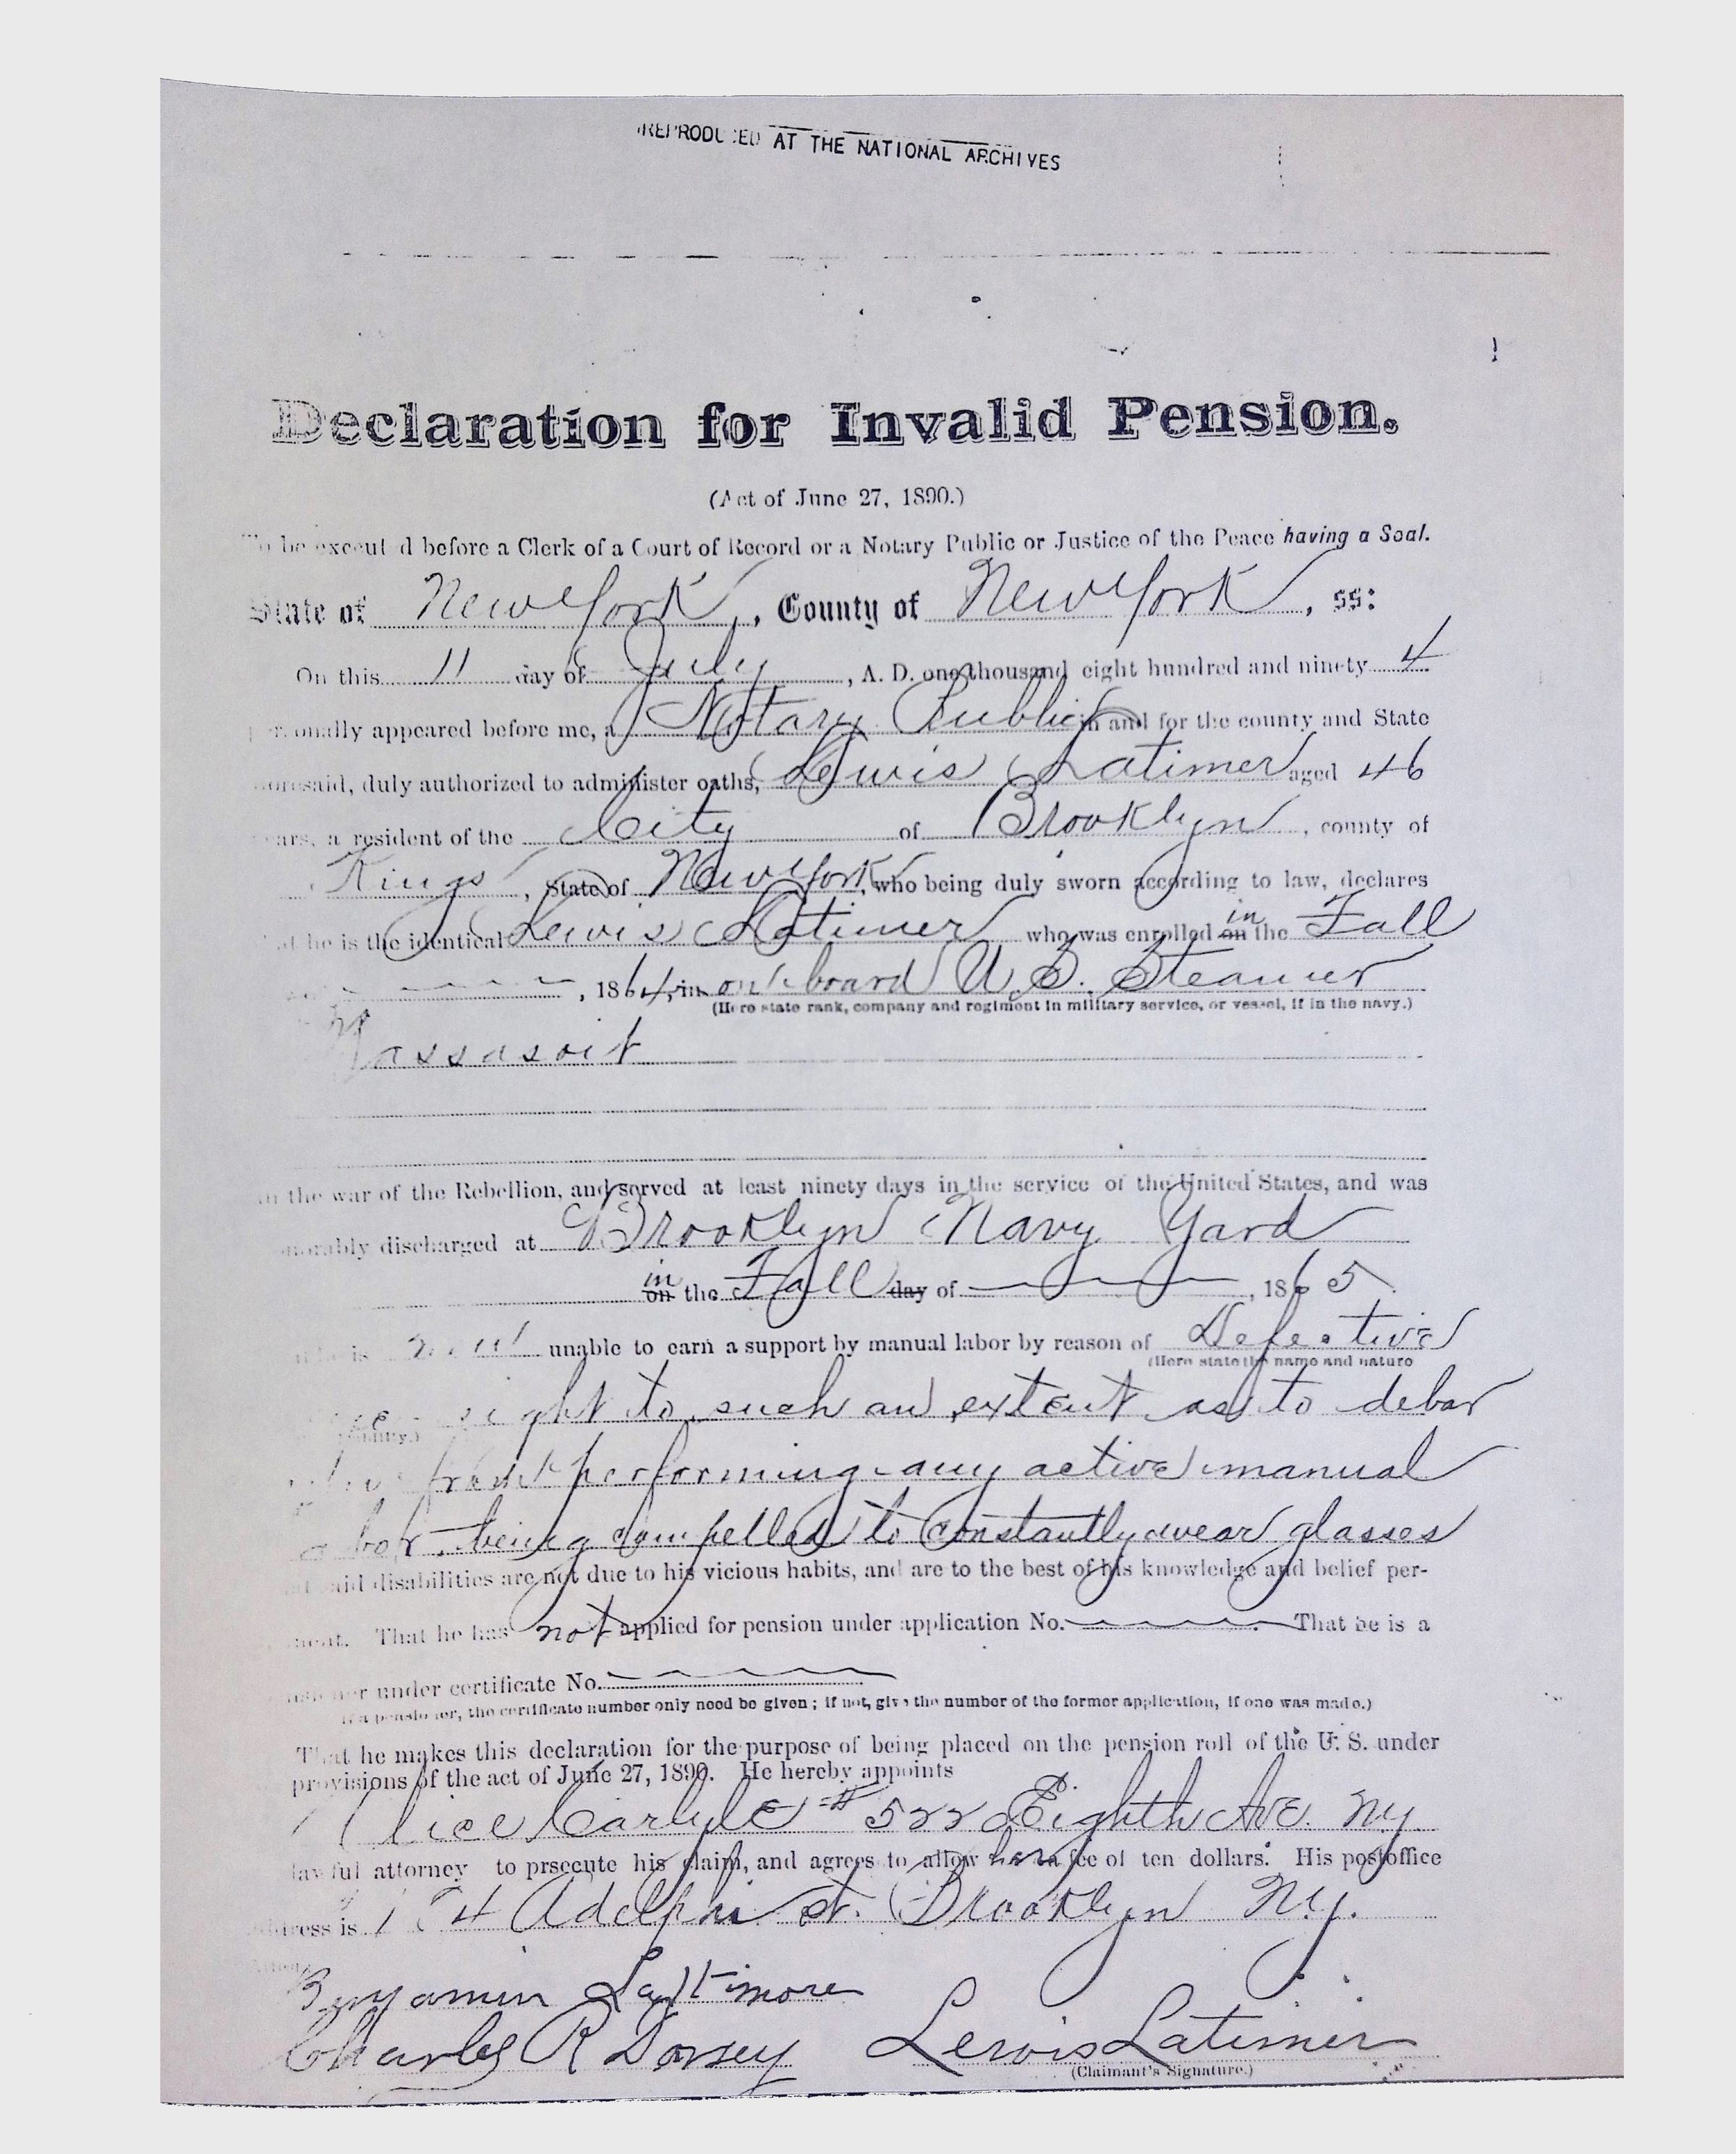 REPRODUCED AT THE NATIONAL ARCHIVES
Declaration for Invalid Pension.
(Act of June 27, 1890.)
To be executed before a Clerk of a Court of Record or a Notary Public or Justice of the Peace having a Seal.
State of New York, County of New York, ss:
On this 11 day of July, A. D. one thousand eight hundred and ninety 4
personally appeared before me, a Notary Public in and for the county and State
aforesaid, duly authorized to administer oaths, Lewis Latimer aged 46
years, a resident of the City of Brooklyn, county of
Kings, State of New York, who being duly sworn according to law, declares
that he is the identical Lewis Latimer who was enrolled on in the Fall
, 1864, in on board U.S. Steamer
(Here state rank, company and regiment in military service, or vessel, if in the navy.)
Massasoit
in the war of the Rebellion, and served at least ninety days in the service of the United States, and was
honorably discharged at Brooklyn Navy Yard
on in the Fall day of , 1865
is now unable to earn a support by manual labor by reason of Defective
(Here state the name and nature
eye sight to such an extent as to debar
from performing any active manual
labor being compelled to constantly wear glasses
said disabilities are not due to his vicious habits, and are to the best of his knowledge and belief per-
manent. That he has not applied for pension under application No. That he is a
pensioner under certificate No.
If a pensioner, the certificate number only need be given; if not, give the number of the former application, if one was made.)
That he makes this declaration for the purpose of being placed on the pension roll of the U. S. under
provisions of the act of June 27, 1890. He hereby appoints
Alice Carlyle # 522 Eighth Ave. N.y.
lawful attorney to prsecute his claim, and agrees to allow her a fee of ten dollars. His postoffice
address is Adelphi st. Brooklyn N.y.
Benjamin Lattimore
Charles R Dorsey Lewis Latimer
(Claimant's Signature.)